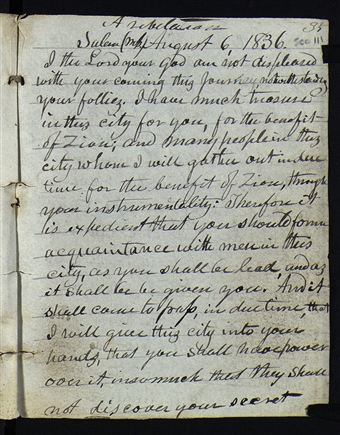 A revelation 35
Salem (Ms) August 6, 1836. Sec 111
I the Lord your God am not displeased
with your coming this Journey, notwithstanding
your follies. I have much treasure
in this city for you, for the benefit
of Zion; and many people in this
city whom I will gather out in due
time for the benefit of Zion, through
your instrumentality: Therefore it
is expedient that you should form
acquaintance with men in this
city, as you shall be lead, and as
it shall be be given you. And it
shall come to pass, in due time, that
I will give this city into your
hands, that you shall have power
over it, insomuch that they shall
not discover your secret